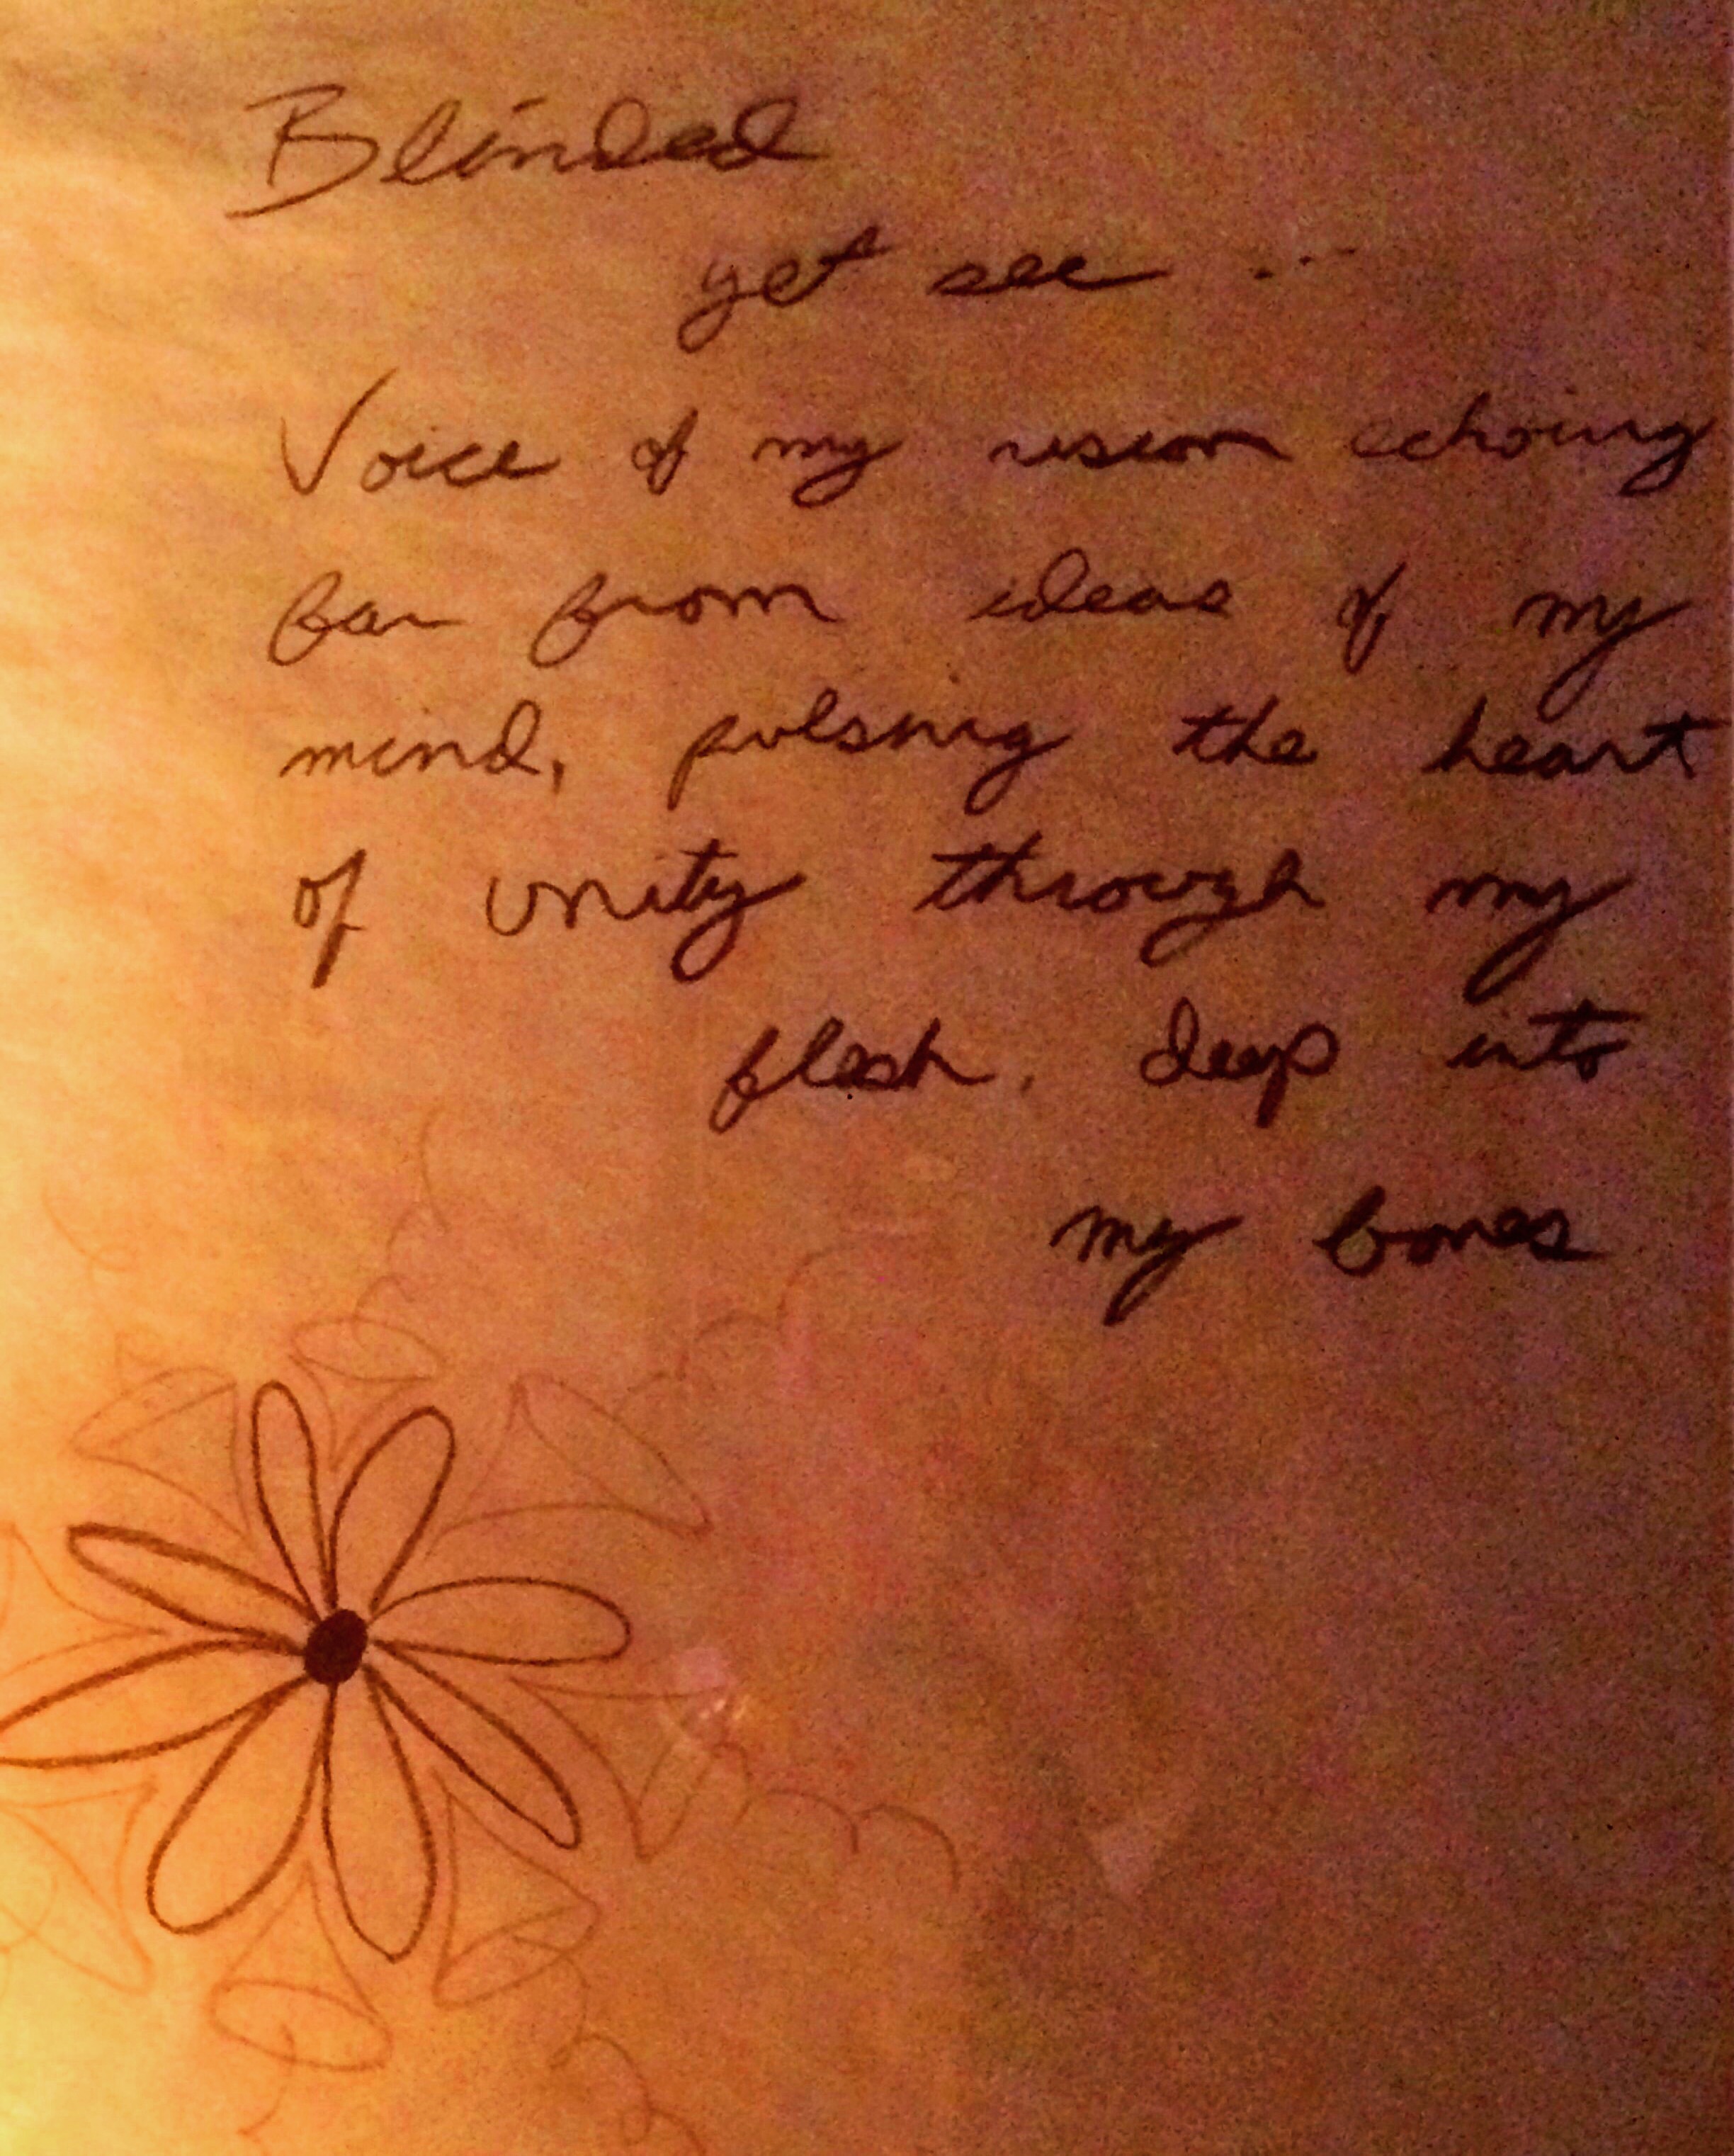 Blinded
yet see ...
Voice of my vision echoing
far from ideas of my
mind, pulsing the heart
of unity through my
flesh, deep into
my bones